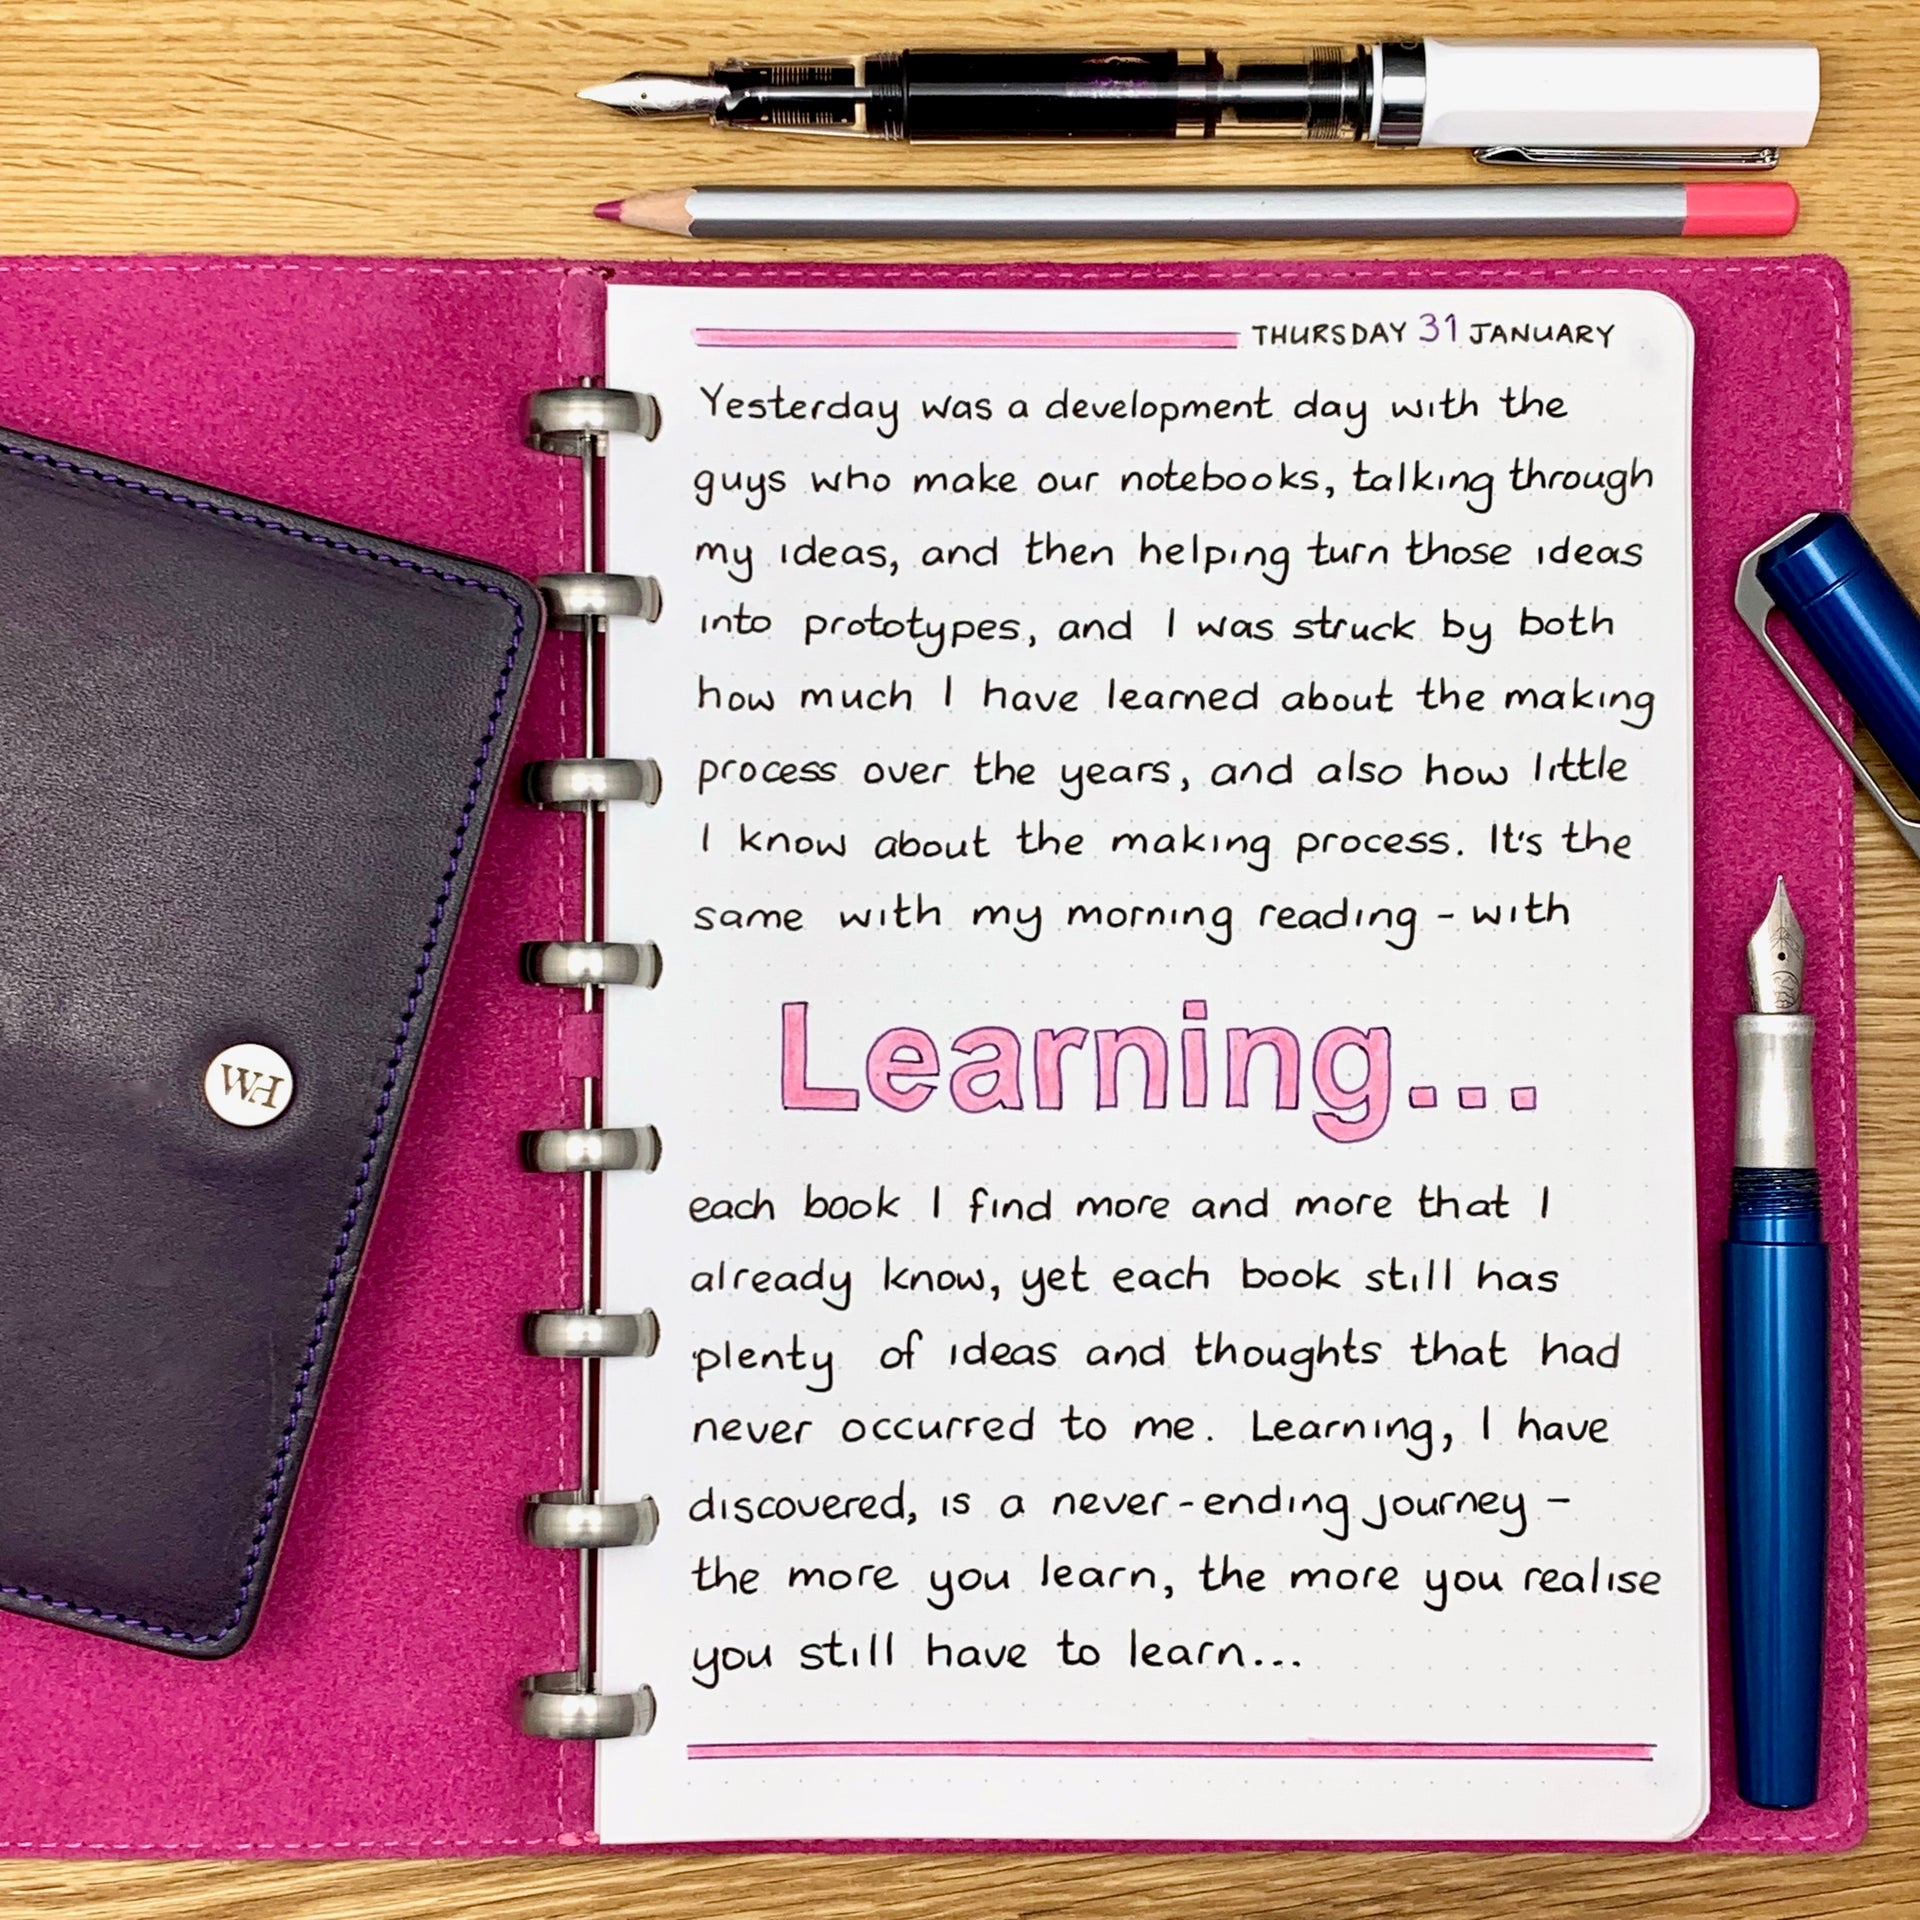 THURSDAY 31 JANUARY
Yesterday was a development day with the
guys who make our notebooks, talking through
my ideas, and then helping turn those ideas
into prototypes, and I was struck by both
how much I have learned about the making
process over the years, and also how little
I know about the making process. It's the
same with my morning reading - with
Learning...
each book I find more and more that I
already know, yet each book still has
plenty of ideas and thoughts that had
never occurred to me. Learning, I have
discovered, is a never-ending journey -
the more you learn, the more you realise
you still have to learn...
WH